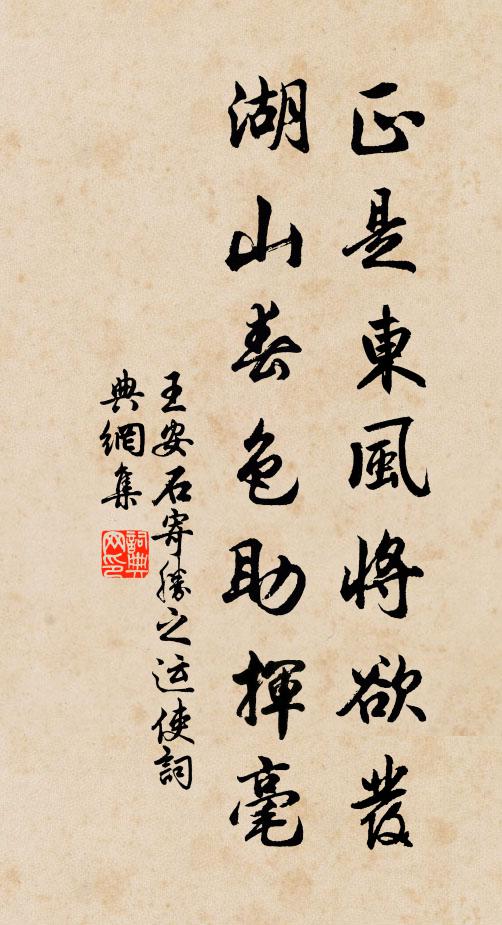 正是東風將欲發
湖山春色助揮毫
王安石寄勝之运使詞
典網集
詞典
网印